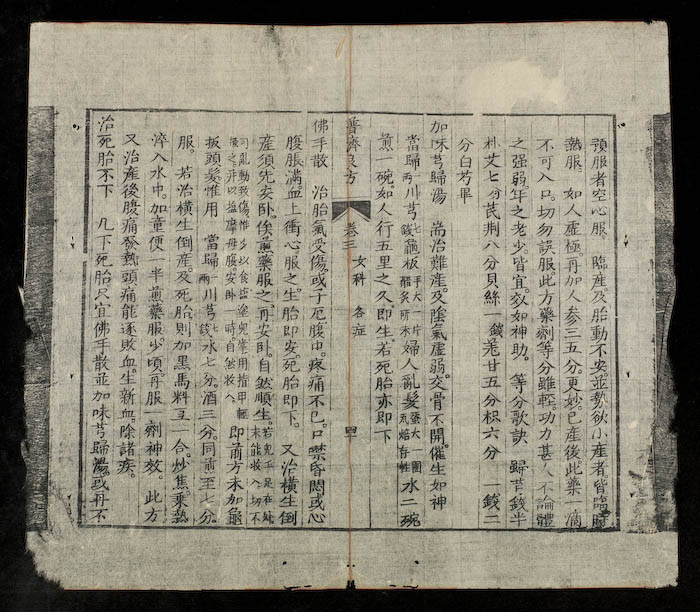 預服者空心服。臨產及胎動不安。並勢欲小產者皆臨時
熱服。如人虛極。再加人參三五分。更妙。已產後此藥一滴
不可入口。切勿誤服。此方藥劑等分雖輕。功力甚大不論體
之强弱。年之老少。皆宜效如神助。等分歌訣 歸芎錢半
朴艾七分芪荆八分貝絲一錢羌廿五分枳六分 一錢二
分白芍畢
加味芎歸湯 耑治難產。及陰氣虛弱。交骨不開。催生如神
當歸一兩川芎七錢龜板手大一片醋炙研末婦人亂髮蛋大一團瓦焙存性水二碗
煎一碗。如人行五里之久即生。若死胎亦即下
普濟良方 卷三 女科 各症
佛手散 治胎氣受傷。或子死腹中。疼痛不已。口噤昏悶。或心
腹脹滿。血上衝心服之。生胎即安。死胎即下。又治橫生倒
產。須先安卧。俟煎藥服之。再安卧。自然順生。若兒手足在外
即前方未加龜
板頭髮惟用 當歸一兩川芎七錢水七分。酒三分。同煎至七分。
服。若治橫生倒產。及死胎則加黑馬料豆一合。炒焦。乘熱
淬入水中。加童便一半煎藥服。少頃再服一劑神效。此方
又治產後腹痛發熱。頭痛。能逐敗血。生新血。除諸疾。
治死胎不下 凡下死胎只宜佛手散並加味芎歸湯。或丹不